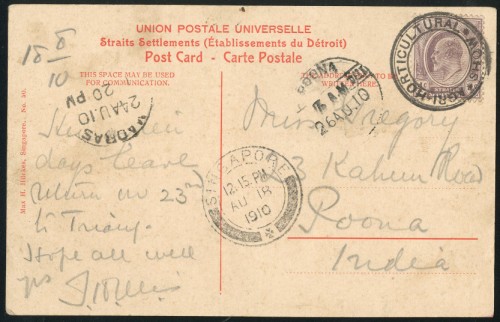 UNION POSTALE UNIVERSELLE
Straits Settlements (Établissements du Détroit)
Post Card - Carte Postale
THIS SPACE MAY BE USED
FOR COMMUNICATION.
THE ADDRESS
TO BE
18 8/10
days leave
return on 23rd
to Triang.
Hope all well
yrs
Miss Gregory
3 Kahun Road
Poona
India
MADRAS
24 AU.10
20 PM
POONA
7 AM
26 AU.10
SINGAPORE
12.15.PM
AU 18
1910
AGRI-HORTICULTURAL
STRAITS
Max H. Hilckes, Singapore. No. 50.